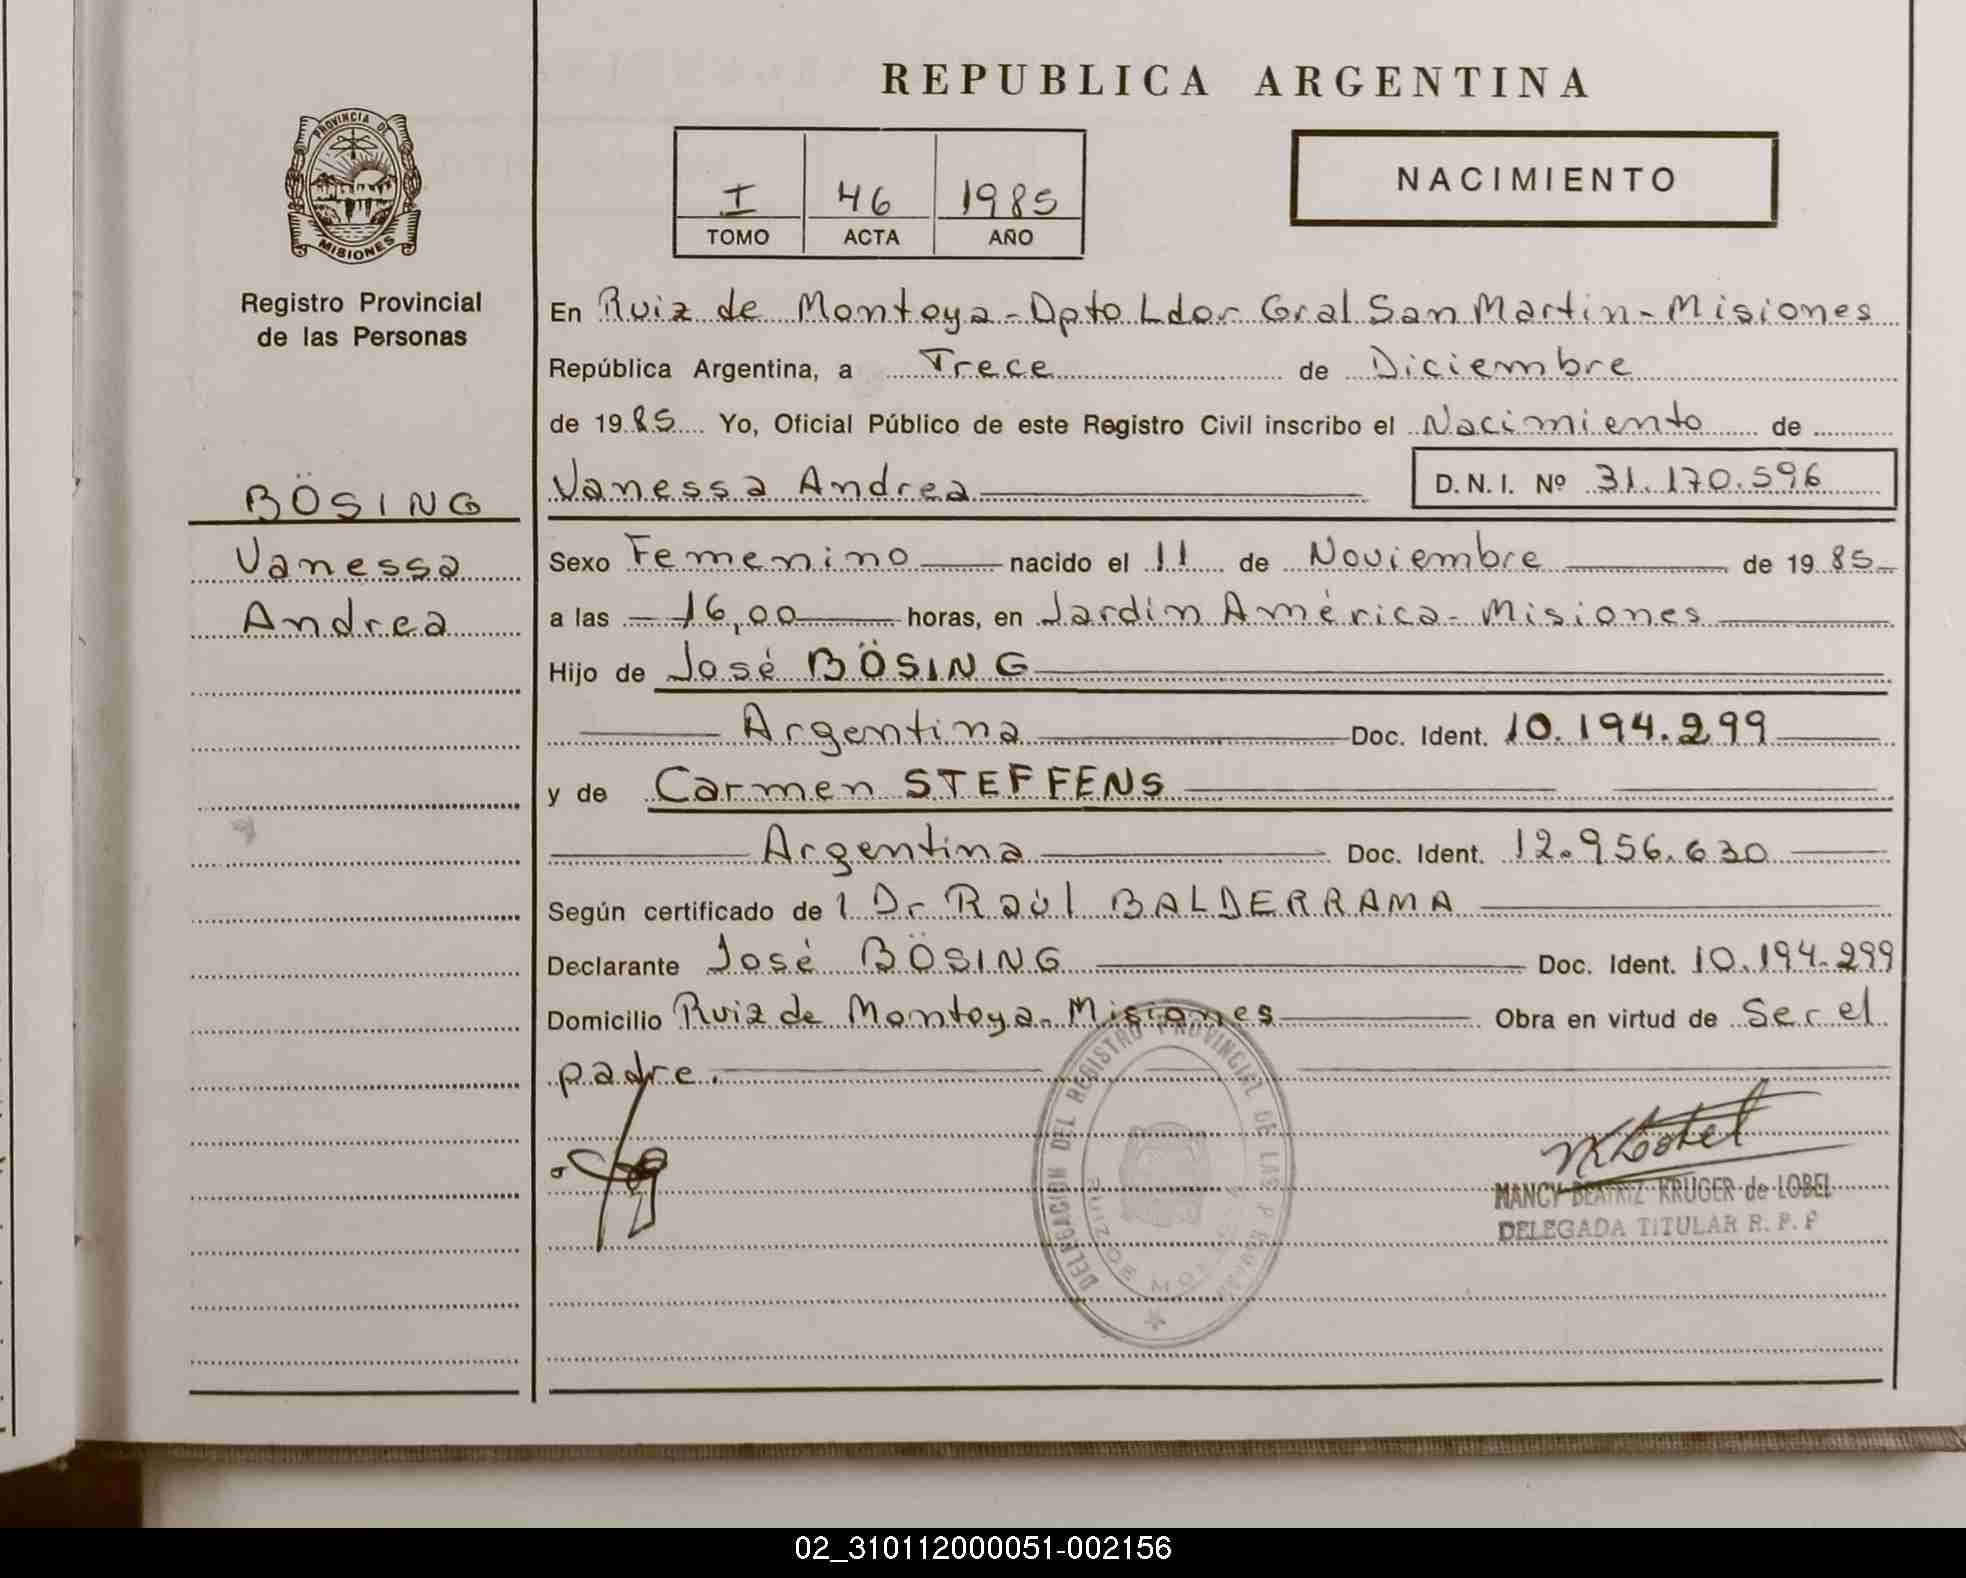 REPUBLICA ARGENTINA
PROVINCIA DE
MISIONES
Registro Provincial
de las Personas
I 46 1985
TOMO ACTA AÑO
NACIMIENTO
BÖSING
Vanessa
Andrea
En Ruiz de Montoya - Dpto Ldor Gral San Martín - Misiones
República Argentina, a Trece de Diciembre
de 1985 Yo, Oficial Público de este Registro Civil inscribo el Nacimiento de
Vanessa Andrea D.N.I. Nº 31.170.596
Sexo Femenino nacido el 11 de Noviembre de 1985
a las 16,00 horas, en Jardín América - Misiones
Hijo de José BÖSING
Argentina Doc. Ident. 10.194.299
y de Carmen STEFFENS
Argentina Doc. Ident. 12.956.630
Según certificado de l Dr Raúl BALDERRAMA
Declarante José BÖSING Doc. Ident. 10.194.299
Domicilio Ruiz de Montoya - Misiones Obra en virtud de Ser el
padre.
DELEGACION DEL REGISTRO PROVINCIAL DE LAS
RUIZ DE
NANCY BEATRIZ KRUGER de LOBEL
DELEGADA TITULAR R. P. P
02_310112000051-002156